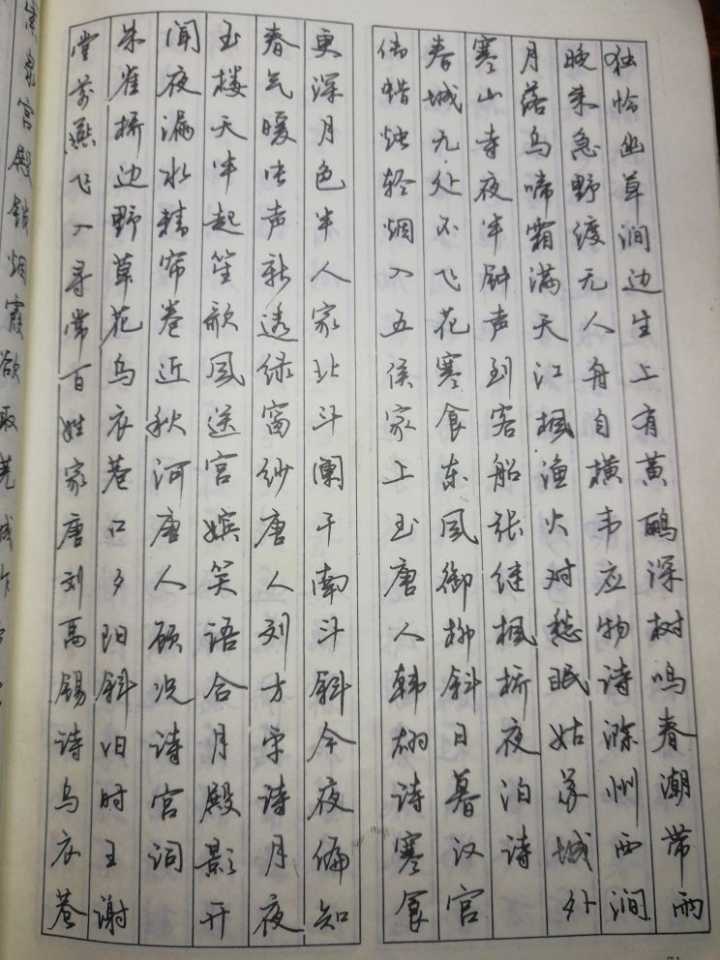 独怜幽草涧边生上有黄鹂深树鸣春潮带雨
晚来急野渡无人舟自横韦应物诗滁州西涧
月落乌啼霜满天江枫渔火对愁眠姑苏城外
寒山寺夜半钟声到客船张继枫桥夜泊诗
春城无处不飞花寒食东风御柳斜日暮汉宫
传蜡烛轻烟入五侯家上玉唐人韩翃诗寒食
更深月色半人家北斗阑干南斗斜今夜偏知
春气暖虫声新透绿窗纱唐人刘方平诗月夜
玉楼天半起笙歌风送宫嫔笑语合月殿影开
闻夜漏水精帘卷近秋河唐人顾况诗宫词
朱雀桥边野草花乌衣巷口夕阳斜旧时王谢
堂前燕飞入寻常百姓家唐刘禹锡诗乌衣巷
泉宫殿锁烟霞欲取芜城作